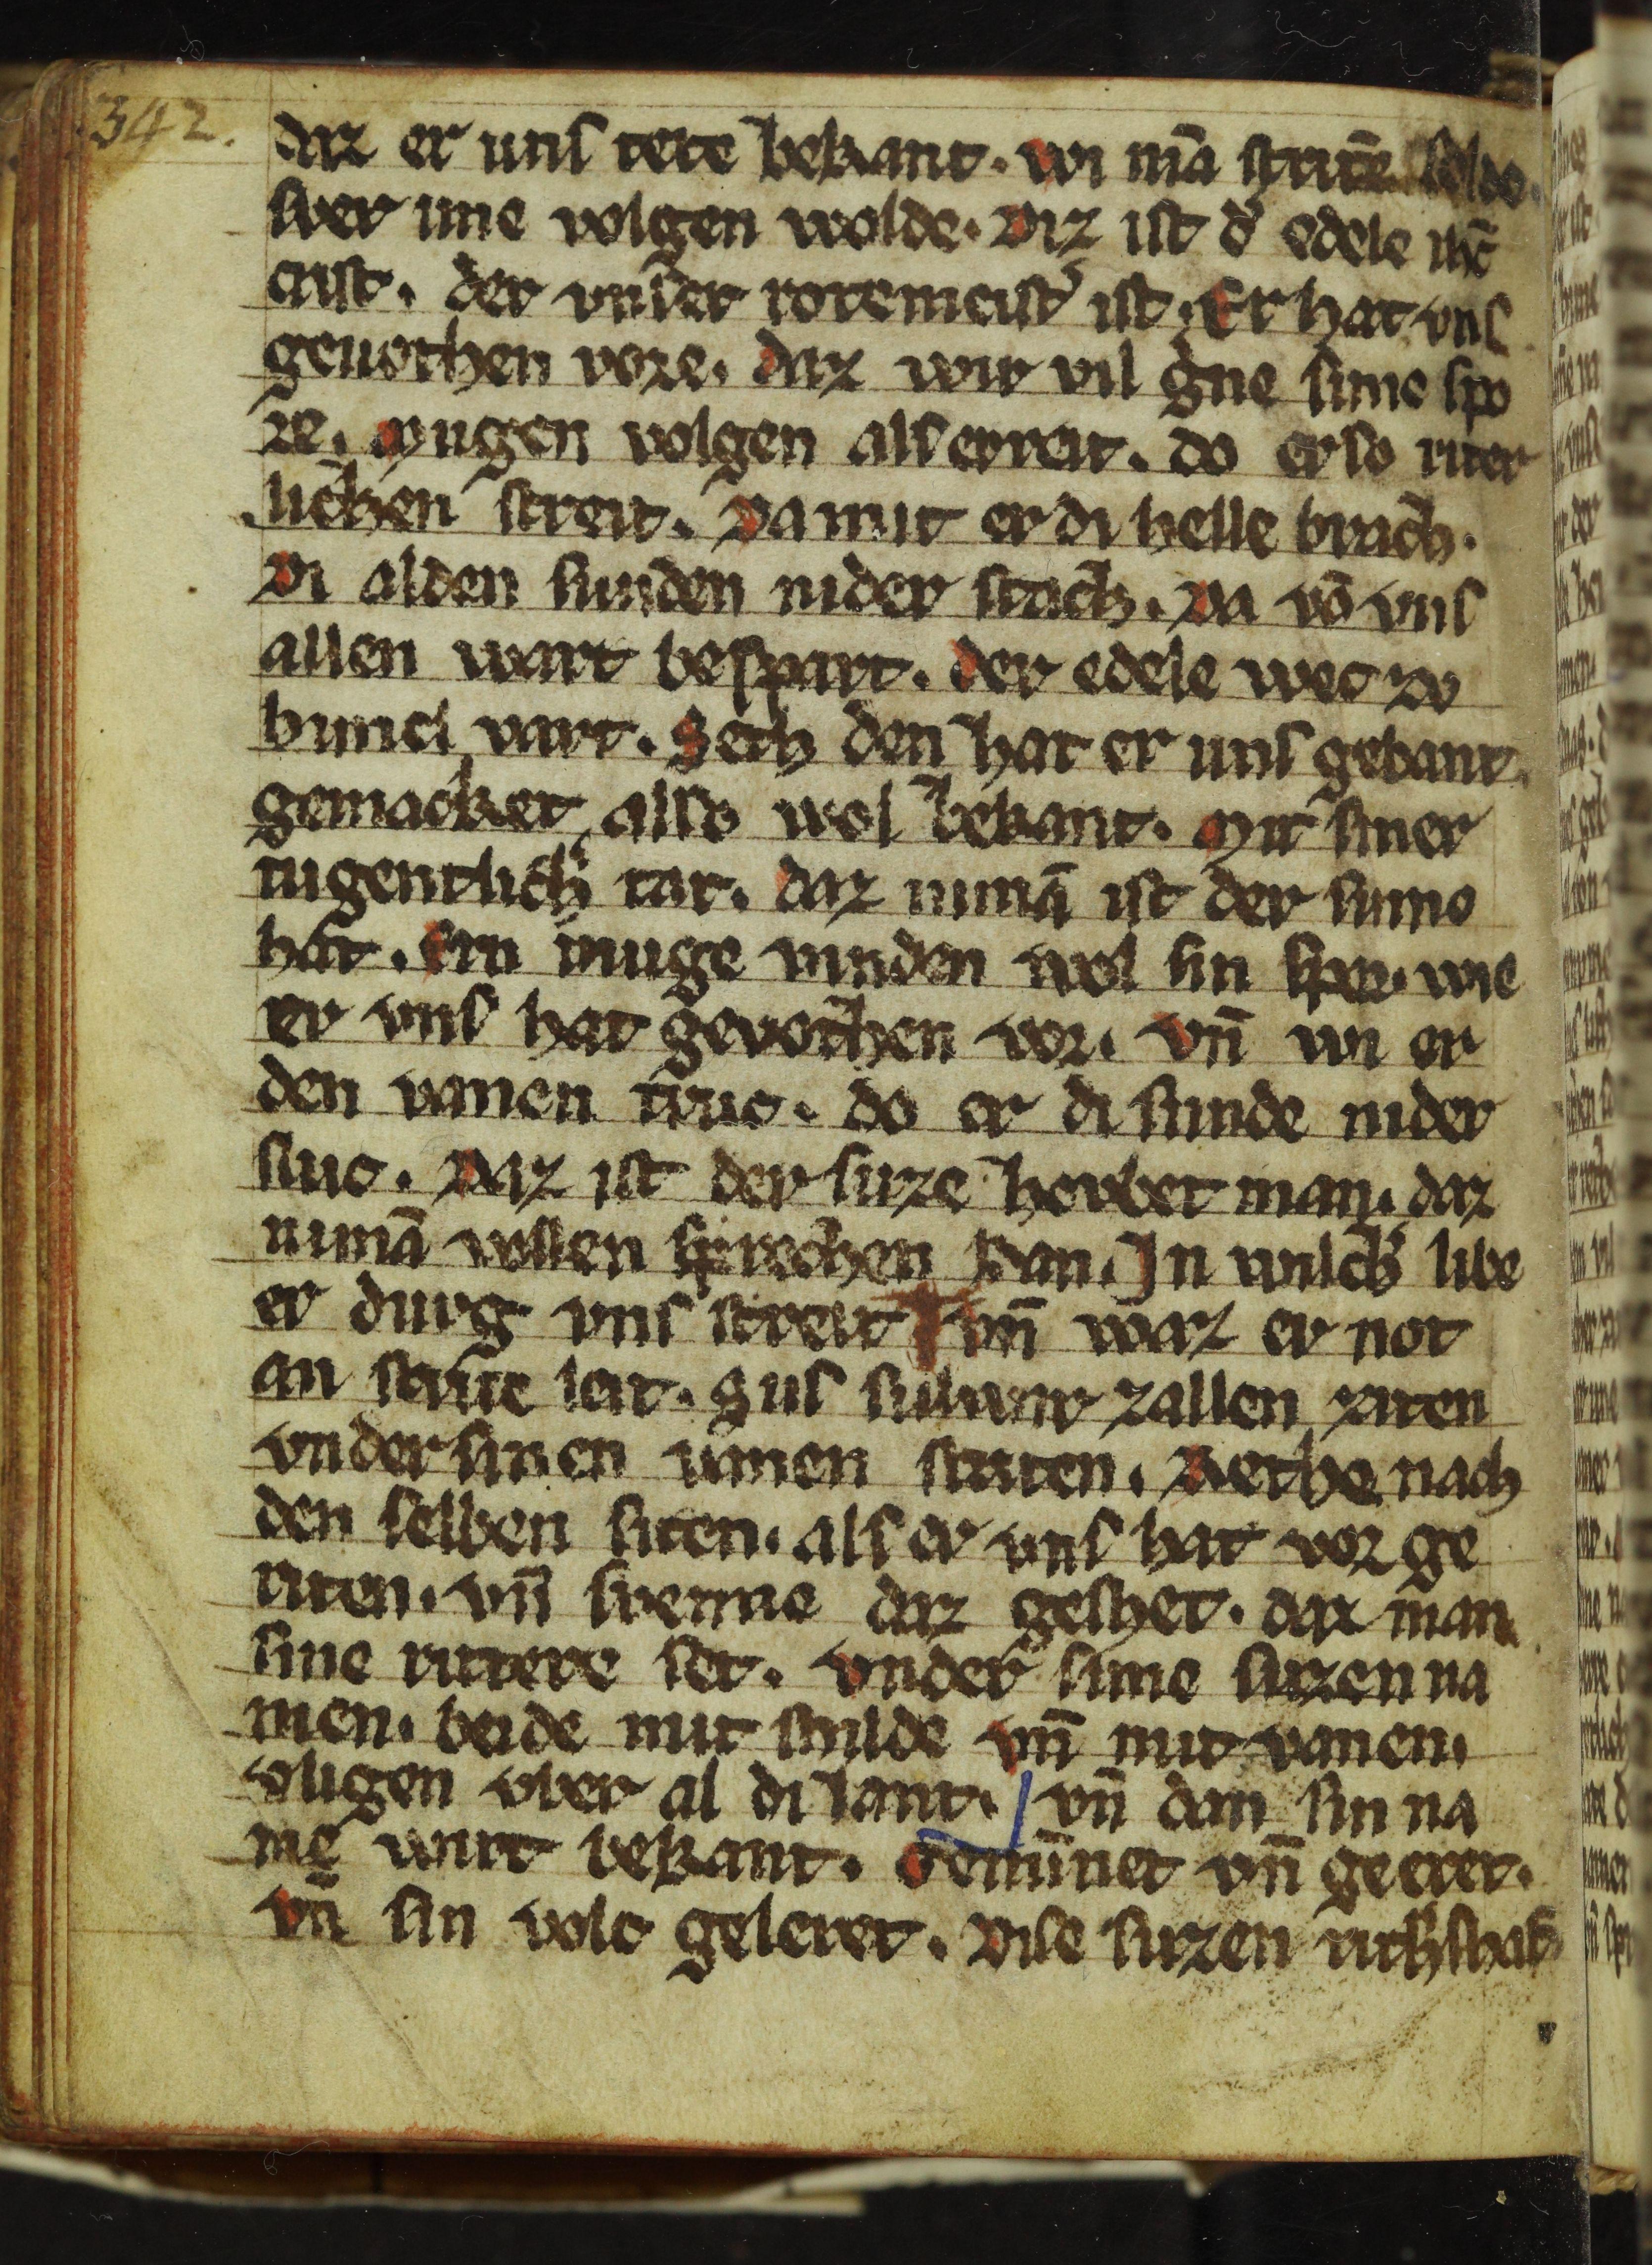 342.
daz er unſ tete bekant. wi mā ſtritē ſolde.
ſwer ime volgen wolde. Diz iſt d' edele ihc̄
criſt. der vnſer rotemeiſt' iſt. Er hat vnſ
geuothen vore. daz wir vil g'ne ſime ſpo
re. Mugen volgen alſ er reit. do er ſo riter
lichen ſtreit. Da mit er di helle brach.
Di alden ſunden nider ſtach. Da vō vnſ
allen wart beſpart. der edele wec zv
himel vart. Seth den hat er unſ gebant.
gemacket alſo wol bekant. Mit ſiner
tugentlich' tat. daz nimā iſt der ſinne
hat. Ern muge vinden wol ſin ſpor. wie
er vnſ hat gevothen vor. vn̄ wi er
den vanen truc. do er di ſunde nider
ſluc. Daz iſt der ſuze hovbet man. daz
nimā vollen ſprechen kan. In wilch' libe
er durg vnſ ſtreit vn̄ waz er not
an ſtrite leit. Suſ ſulwir zallen ziten
vnder ſinen vanen ſtriten. Rethe nach
den ſelben ſiten. alſ er vnſ hat vor ge
riten. vn̄ ſwenne daz geſhet. daz man
ſine rittere ſet. vnder ſime ſuzen na
men. beide mit ſhilde vn̄ mit vanen.
vligen vber al di lant. vn̄ dan ſin na
me wirt bekant. Geminnet vn̄ geeret.
vn̄ ſin volc geleret. Diſe ſuzen rith'ſhaft